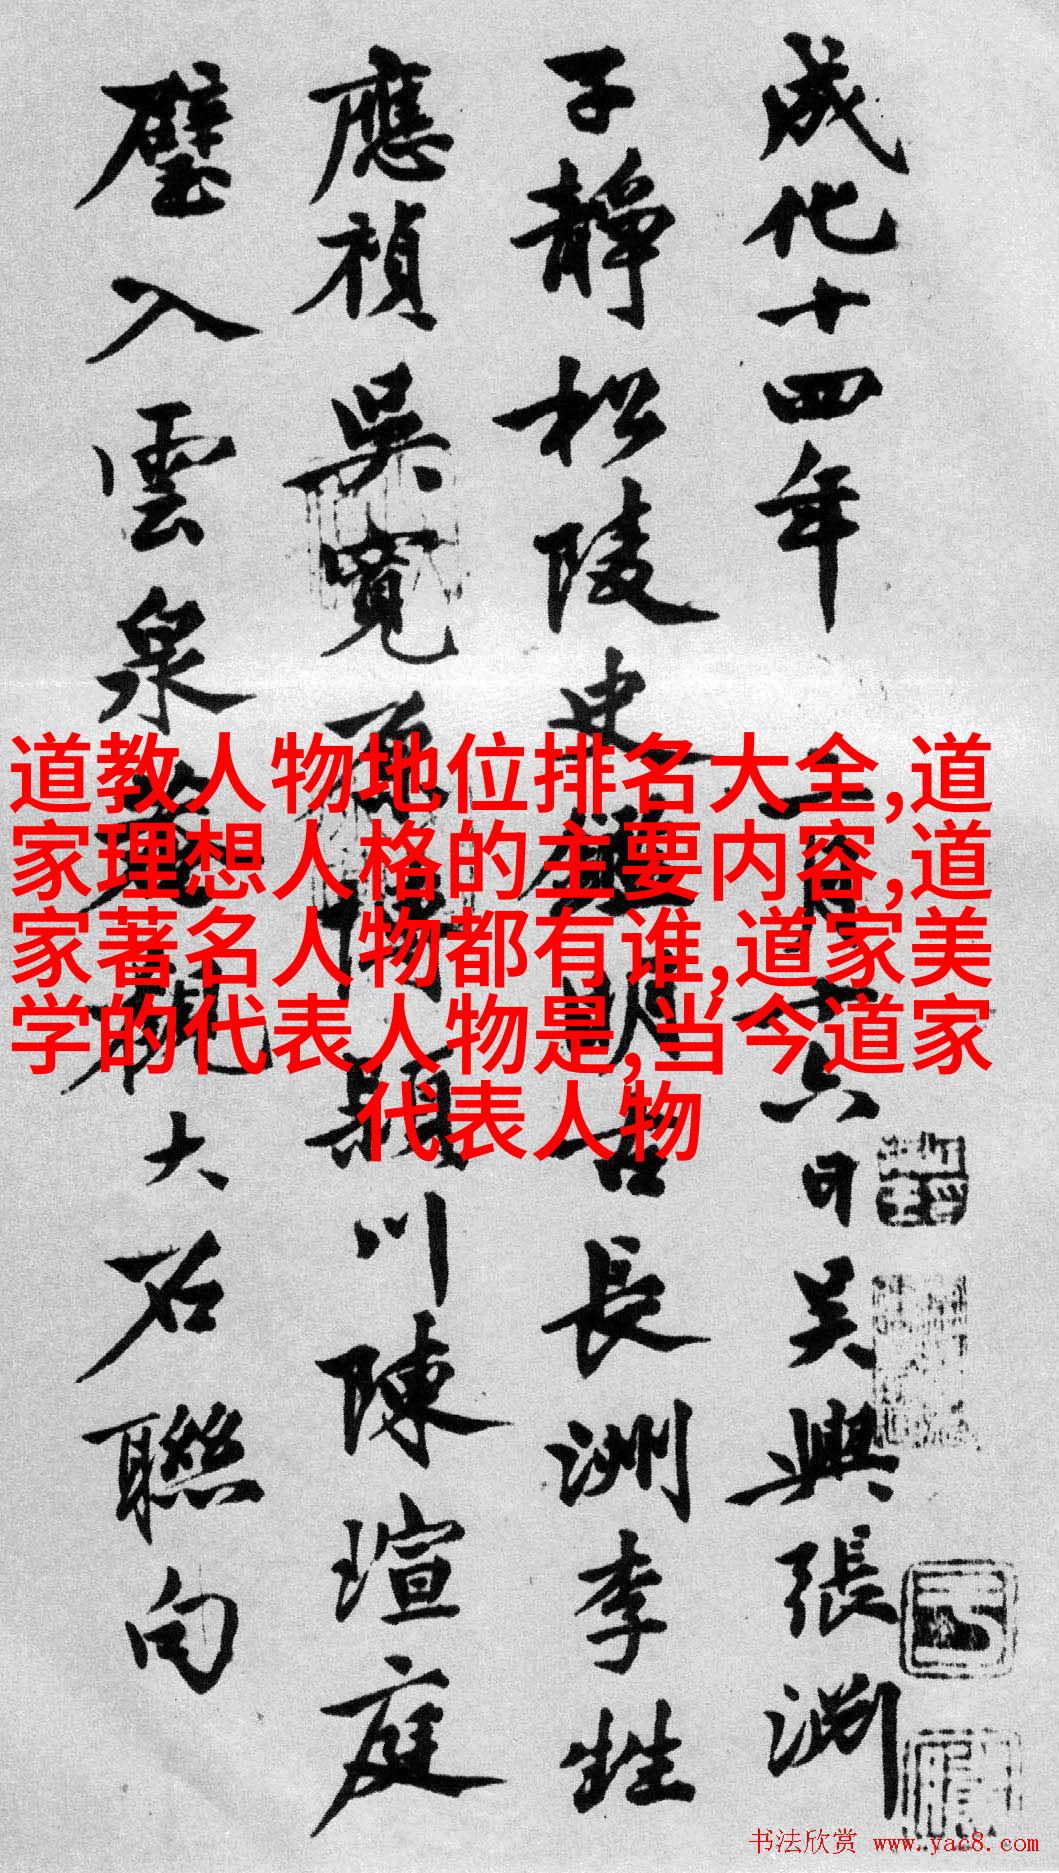 成化十四年二月十六日吴興張淵
子静松陵史鑑明古長洲李甡
應禎吴寬原博潁川陳瑄庭
璧入雲泉菴觀大石聯句
道教人物地位排名大全,道
家理想人格的主要内容,道
家著名人物都有谁,道家美
学的代表人物是,当今道家
代表人物
书法欣赏 www.yac8.com